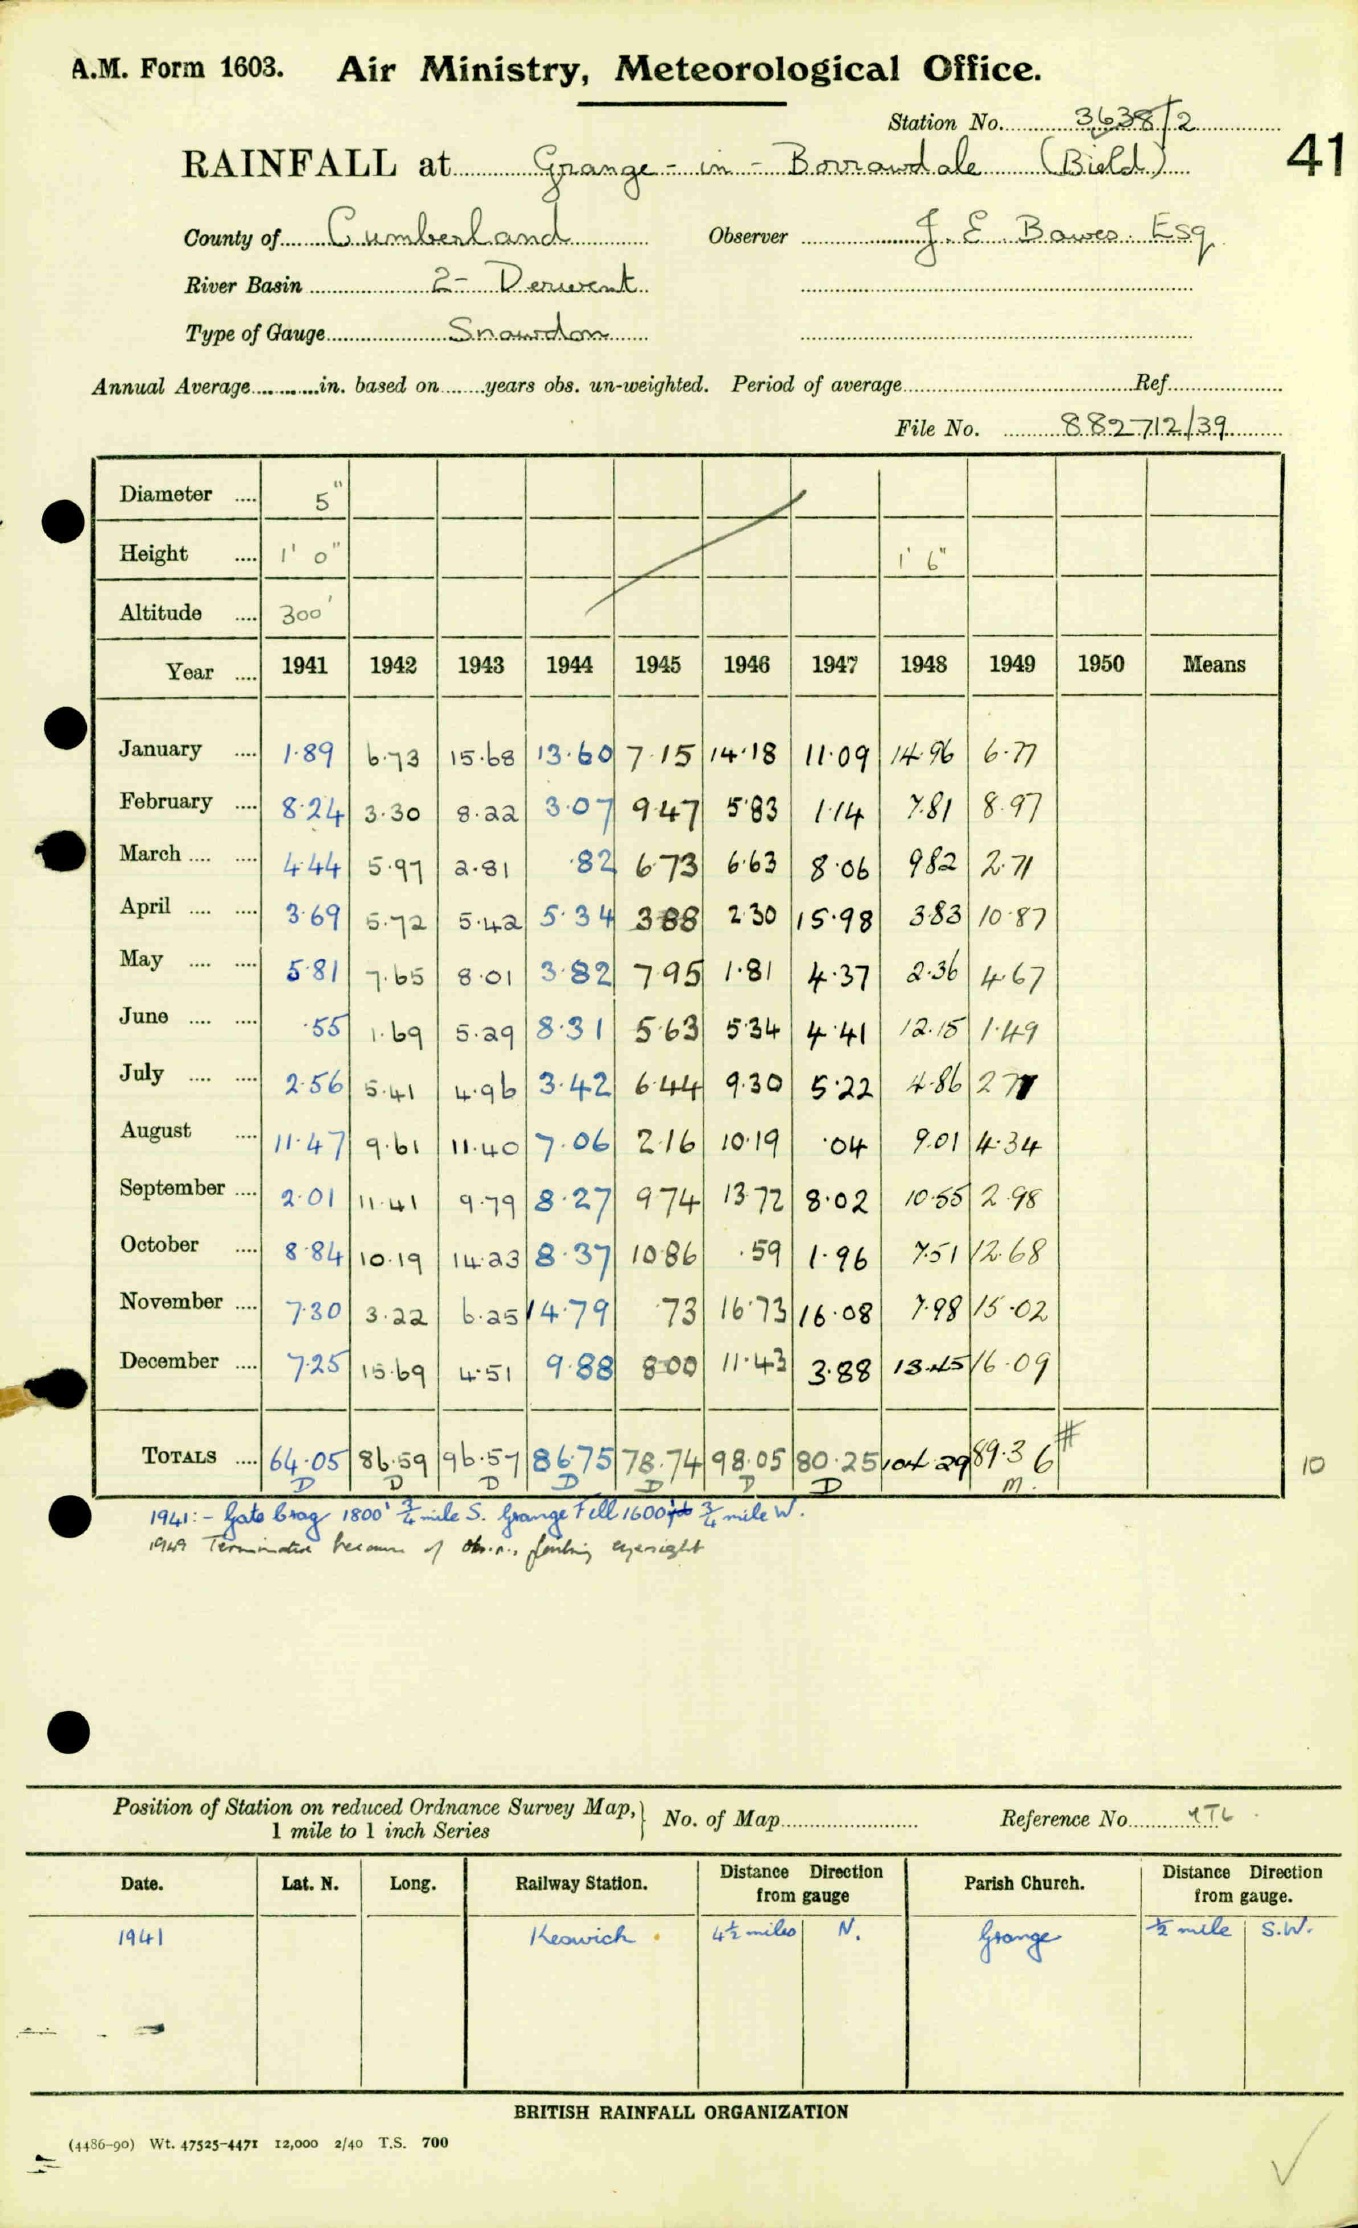 A.M. Form 1603. Air Ministry, Meteorological Office.
Station No. 3638/2
RAINFALL at Grange-in-Borrowdale (Bield) 41
County of Cumberland Observer J. E. Bowes Esq
River Basin 2- Derwent
Type of Gauge Snowdon
Annual Average in. based on years obs. un-weighted. Period of average Ref
File No. 882712/39
Diameter 5"
Height 1' 0" 1' 6"
Altitude 300'
Year 1941 1942 1943 1944 1945 1946 1947 1948 1949 1950 Means
January 1.89 6.73 15.68 13.60 7.15 14.18 11.09 14.96 6.77
February 8.24 3.30 8.22 3.07 9.47 5.83 1.14 7.81 8.97
March 4.44 5.97 2.81 .82 6.73 6.63 8.06 9.82 2.71
April 3.69 5.72 5.42 5.34 3.88 2.30 15.98 3.83 10.87
May 5.81 7.65 8.01 3.82 7.95 1.81 4.37 2.36 4.67
June .55 1.69 5.29 8.31 5.63 5.34 4.41 12.15 1.49
July 2.56 5.41 4.96 3.42 6.44 9.30 5.22 4.86 2.77
August 11.47 9.61 11.40 7.06 2.16 10.19 .04 9.01 4.34
September 2.01 11.41 9.79 8.27 9.74 13.72 8.02 10.55 2.98
October 8.84 10.19 14.23 8.37 10.86 .59 1.96 7.51 12.68
November 7.30 3.22 6.25 14.79 .73 16.73 16.08 7.98 15.02
December 7.25 15.69 4.51 9.88 8.00 11.43 3.88 13.45 16.09
TOTALS 64.05 86.59 96.57 86.75 78.74 98.05 80.25 104.29 89.36 # 10
D D D D D D D m.
1941:- Gate Crag 1800' ¾ mile S. Grange Fell 1600' ¾ mile W.
1949 Terminated because of failing eyesight
Position of Station on reduced Ordnance Survey Map, 1 mile to 1 inch Series } No. of Map Reference No.
Date. Lat. N. Long. Railway Station. Distance Direction from gauge Parish Church. Distance Direction from gauge.
1941 Keswick 4½ miles N. Grange ½ mile S.W.
BRITISH RAINFALL ORGANIZATION
(4486-90) Wt. 47525-4471 12,000 2/40 T.S. 700